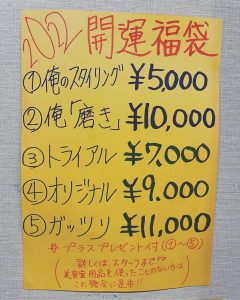 2022 開運福袋
①俺のスタイリング ¥5,000
②俺「磨き」 ¥10,000
③トライアル ¥7,000
④オリジナル ¥9,000
⑤ガッツリ ¥11,000
プラスプレゼント付(①〜⑤)
詳しくはスタッフまで
美容室用品を使ったことのない方は
この機会に是非!!